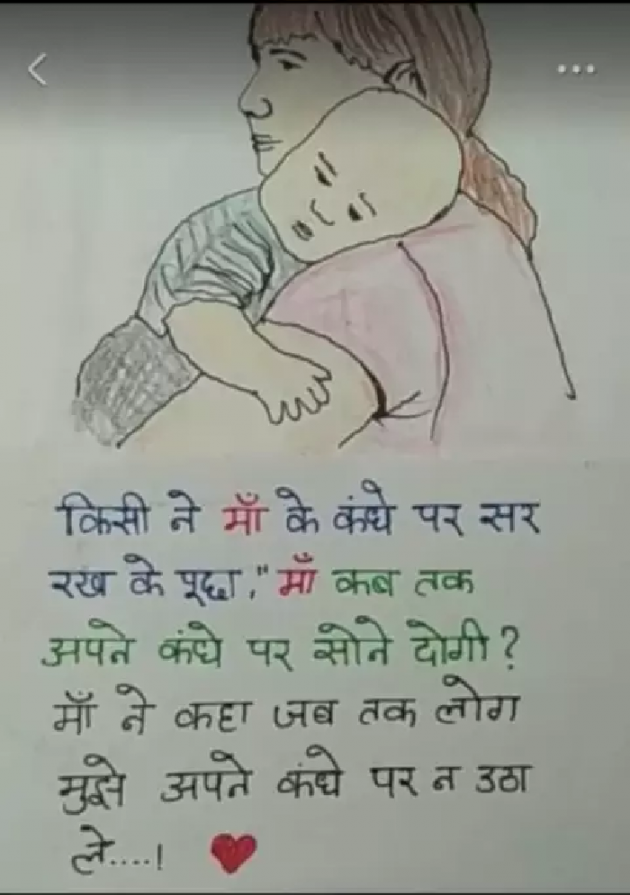 किसी ने माँ के कंधे पर सर
रख के पूछा," माँ कब तक
अपने कंधे पर सोने दोगी?
माँ ने कहा जब तक लोग
मुझे अपने कंधे पर न उठा
ले....! ❤